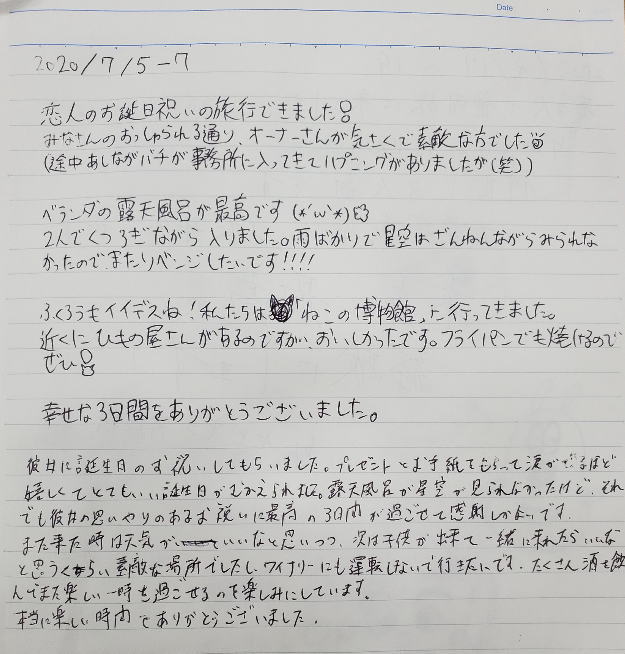 Date
2020/7/5-7
恋人のお誕生日祝いの旅行できました
みなさんのおっしゃられる通り、オーナーさんが気さくで素敵な方でした
(途中あしながバチが事務所に入ってきてハプニングがありましたが(笑))
ベランダの露天風呂が最高です(*'ω'*)
2人でくつろぎながら入りました。雨ばかりで星空はざんねんながらみられな
かったので、またリベンジしたいです!!!!
ふくろうもイイデスね!私たちは「ねこの博物館」に行ってきました。
近くにひもの屋さんがあるのですが、おいしかったです。フライパンでも焼けるので
ぜひ
幸せな3日間をありがとうございました。
彼女に誕生日のお祝いしてもらいました。プレゼントとお手紙てもらって涙がでるほど
嬉しくてとてもいい誕生日がむかえられました。露天風呂が星空が見られなかったけど、それ
でも彼女の思いやりのあるお祝いに最高の3日間が過ごせて感謝しかないです。
また来た時は天気がいいなと思いつつ、次は子供が出来て一緒に来れたらいいな
と思うくらい素敵な場所でしたし、ワイナリーにも運転しないで行きたいです。たくさん酒を飲
んでまた楽しい一時を過ごせるのを楽しみにしています。
本当に楽しい時間でありがとうございました.